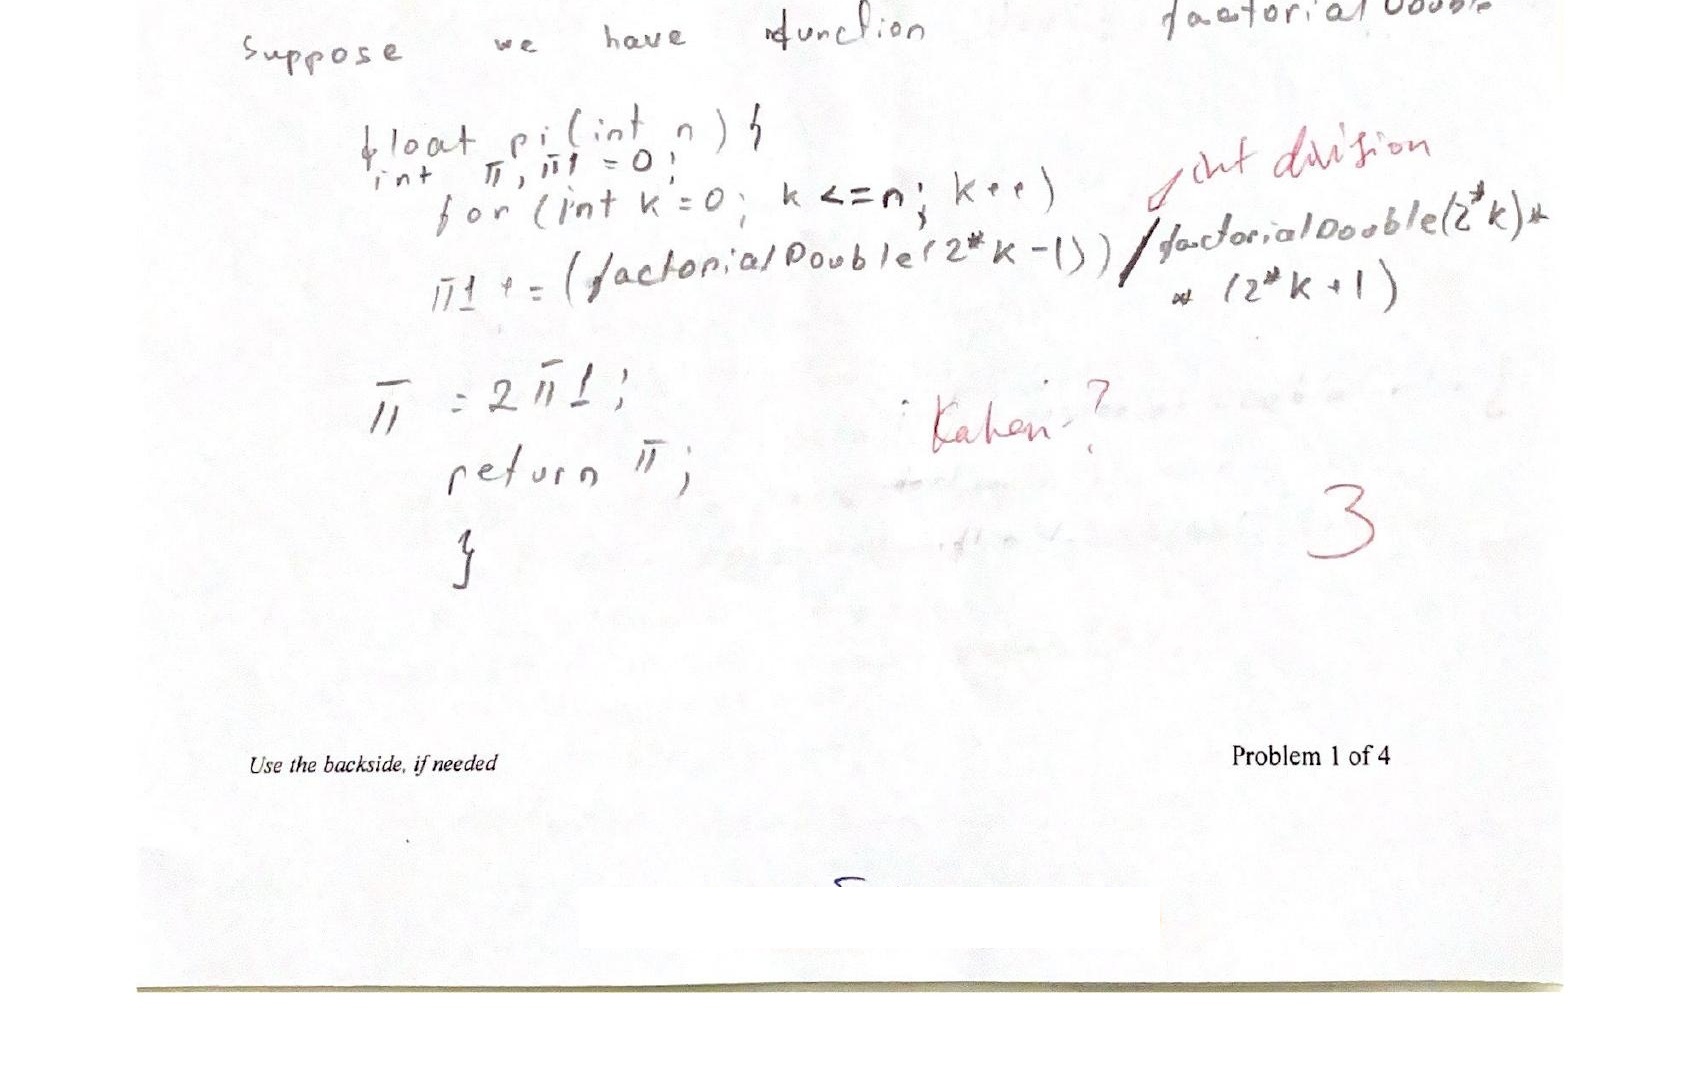 Suppose we have function factorialDouble
float pi(int n) {
int π, π1 = 0;
int division
for (int k=0; k <=n; k++)
π1 += (factorialDouble(2*k-1))/factorialDouble(2*k)*
* (2*k+1)
π = 2π1;
Kahan?
return π;
3
}
Use the backside, if needed
Problem 1 of 4